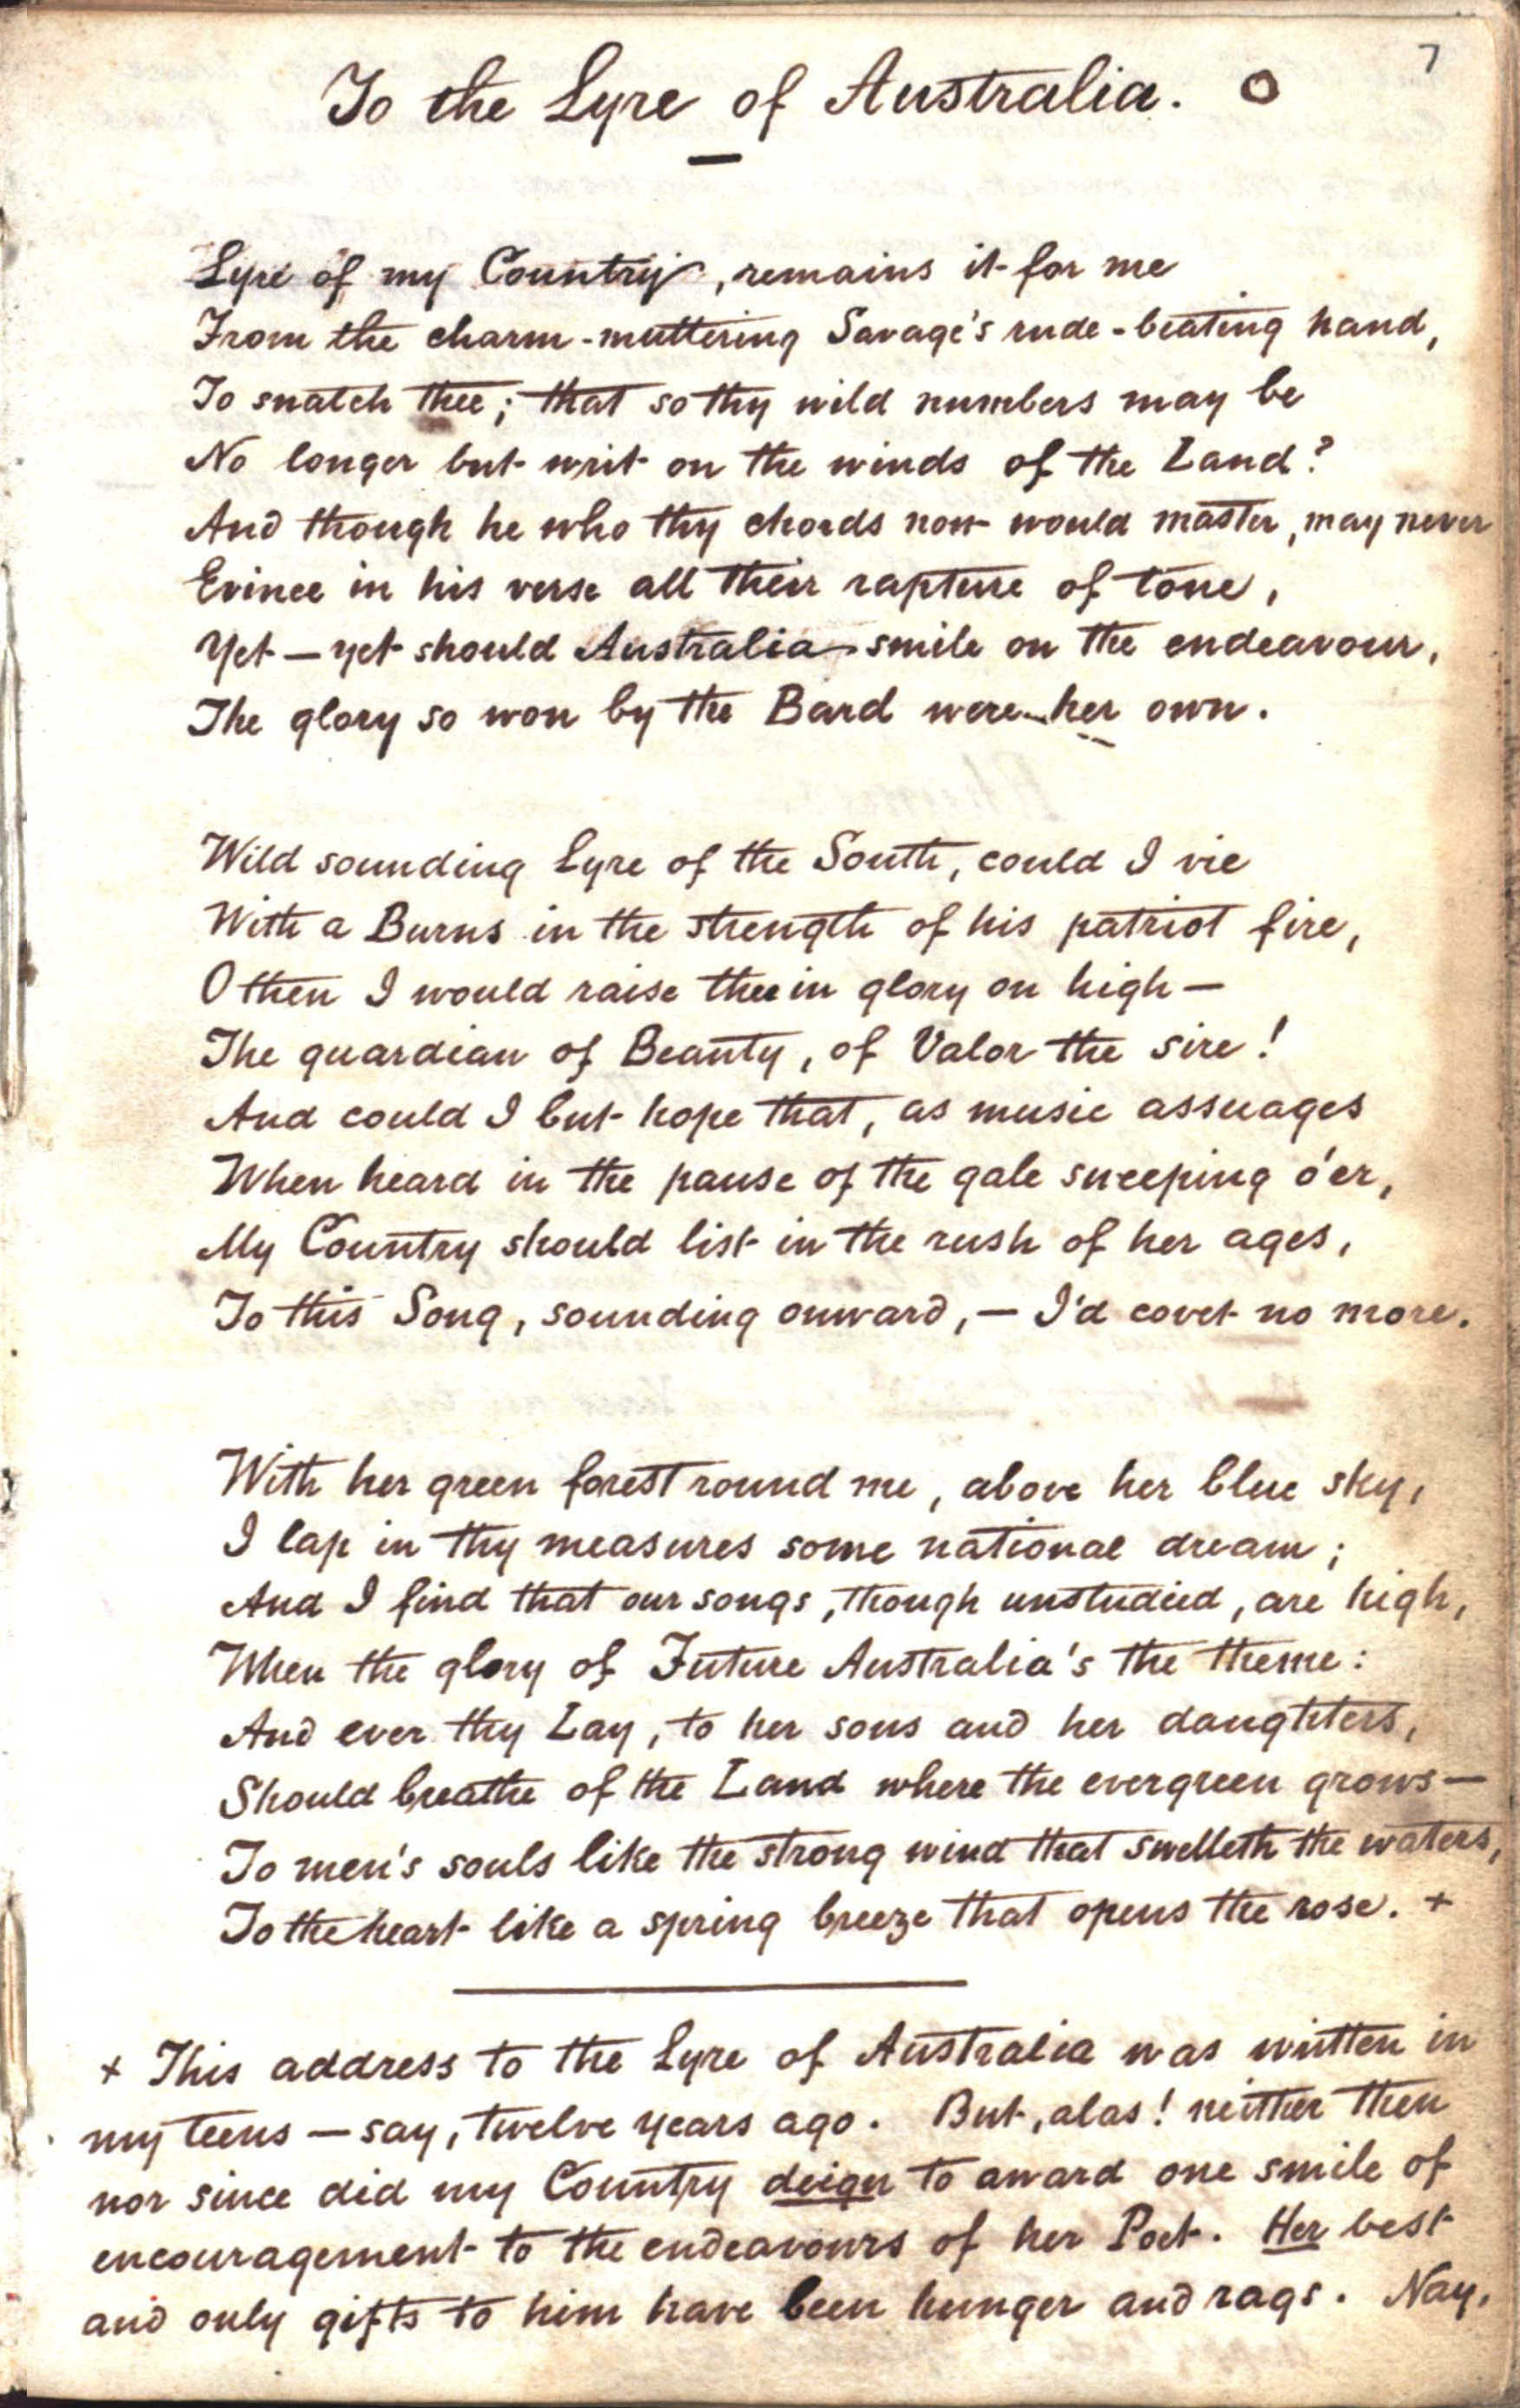 7
To the Lyre of Australia. O
Lyre of my Country, remains it for me
From the charm-muttering Savage's rude-beating hand,
To snatch thee; that so thy wild numbers may be
No longer but writ on the winds of the Land?
And though he who thy chords now would master, may never
Evince in his verse all their rapture of tone,
Yet — yet should Australia smile on the endeavour,
The glory so won by the Bard were her own.
Wild sounding Lyre of the South, could I vie
With a Burns in the strength of his patriot fire,
O then I would raise thee in glory on high —
The guardian of Beauty, of Valor the sire!
And could I but hope that, as music assuages
When heard in the pause of the gale sweeping o'er,
My Country should list in the rush of her ages,
To this Song, sounding onward, — I'd covet no more.
With her green forest round me, above her blue sky,
I lap in thy measures some national dream;
And I find that our songs, though unstudied, are high,
When the glory of Future Australia's the theme:
And ever thy Lay, to her sons and her daughters,
Should breathe of the Land where the evergreen grows —
To men's souls like the strong wind that swelleth the waters,
To the heart like a spring breeze that opens the rose. +
+ This address to the Lyre of Australia was written in
my teens — say, twelve years ago. But, alas! neither then
nor since did my Country deign to award one smile of
encouragement to the endeavours of her Poet. Her best
and only gifts to him have been hunger and rags. Nay,